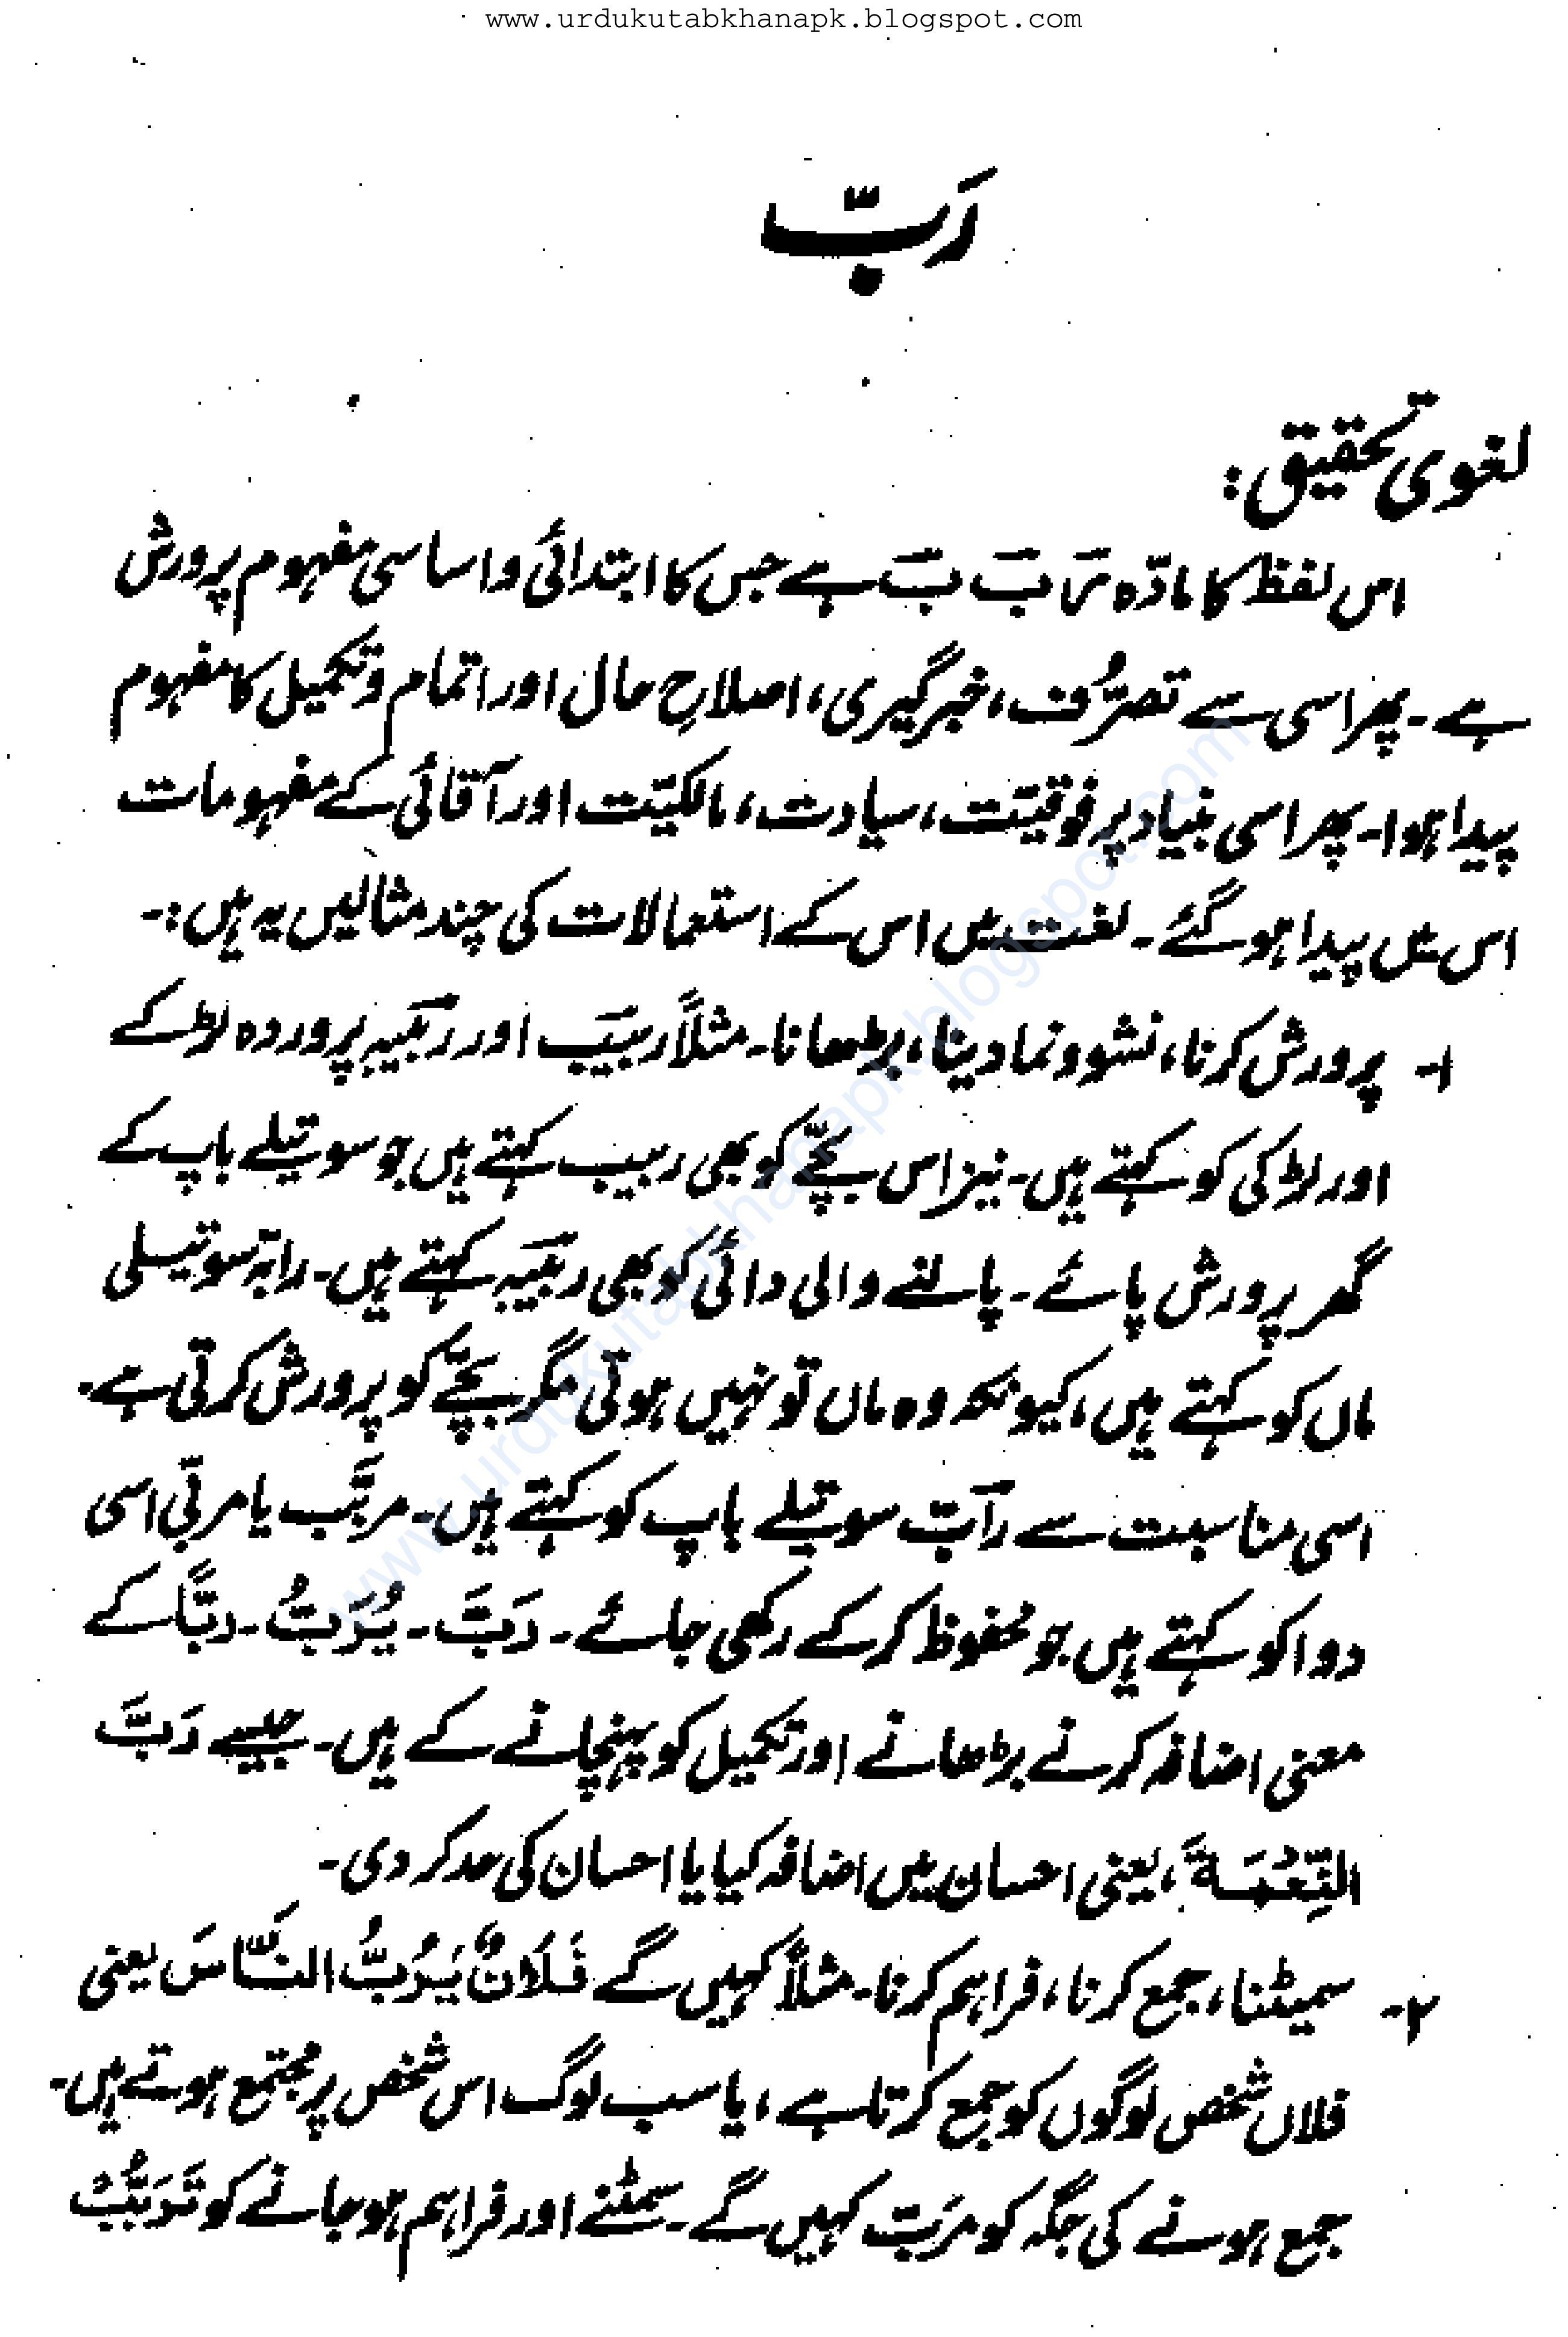 www.urdukutabkhanapk.blogspot.com
رَبّ
لغوی تحقیق:
اس لفظ کا مادّہ رَ بَ بَ ہے جس کا ابتدائی و اساسی مفہوم پرورش
ہے۔ پھر اسی سے تصرُّف، خبرگیری، اصلاحِ حال اور اتمام و تکمیل کا مفہوم
پیدا ہوا۔ پھر اسی بنیاد پر فوقیّت، سیادت، مالکیّت اور آقائی کے مفہومات
اس میں پیدا ہو گئے۔ لغت میں اس کے استعمالات کی چند مثالیں یہ ہیں:۔
۱۔ پرورش کرنا، نشوونما دینا، بڑھانا۔ مثلاً ربیب اور ربیبہ پروردہ لڑکے
اور لڑکی کو کہتے ہیں۔ نیز اس بچّے کو بھی ربیب کہتے ہیں جو سوتیلے باپ کے
گھر پرورش پائے۔ پالنے والی دائی کو بھی ربیبہ کہتے ہیں۔ رابّہ سوتیلی
ماں کو کہتے ہیں، کیونکہ وہ ماں تو نہیں ہوتی مگر بچّے کو پرورش کرتی ہے۔
اسی مناسبت سے رابّ سوتیلے باپ کو کہتے ہیں۔ مربَّب یا مربّی اسی
دوا کو کہتے ہیں جو محفوظ کر کے رکھی جائے۔ رَبَّ۔ یُرَبُّ۔ ربًّا کے
معنی اضافہ کرنے بڑھانے اور تکمیل کو پہنچانے کے ہیں۔ جیسے رَبَّ
النِّعْمَةَ، یعنی احسان میں اضافہ کیا یا احسان کی حد کر دی۔
۲۔ سمیٹنا، جمع کرنا، فراہم کرنا۔ مثلاً کہیں گے فَلَانٌ یَرُبُّ النَّاسَ یعنی
فلاں شخص لوگوں کو جمع کرتا ہے، یا سب لوگ اس شخص پر مجتمع ہوتے ہیں۔
جمع ہونے کی جگہ کو مَرَبّ کہیں گے۔ سمٹنے اور فراہم ہو جانے کو تَرَبُّبْ
www.urdukutabkhanapk.blogspot.com